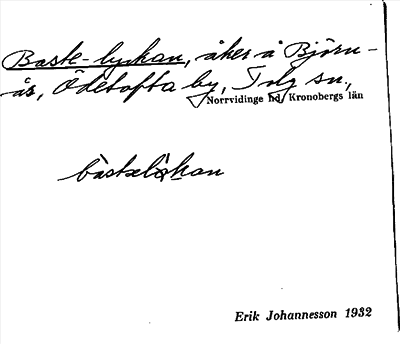 Baste-lyckan, åker å Björn-
ås, Ödetofta by, Tolg sn.,
Norrvidinge hd, Kronobergs län
bàstelỳkan
Erik Johannesson 1932